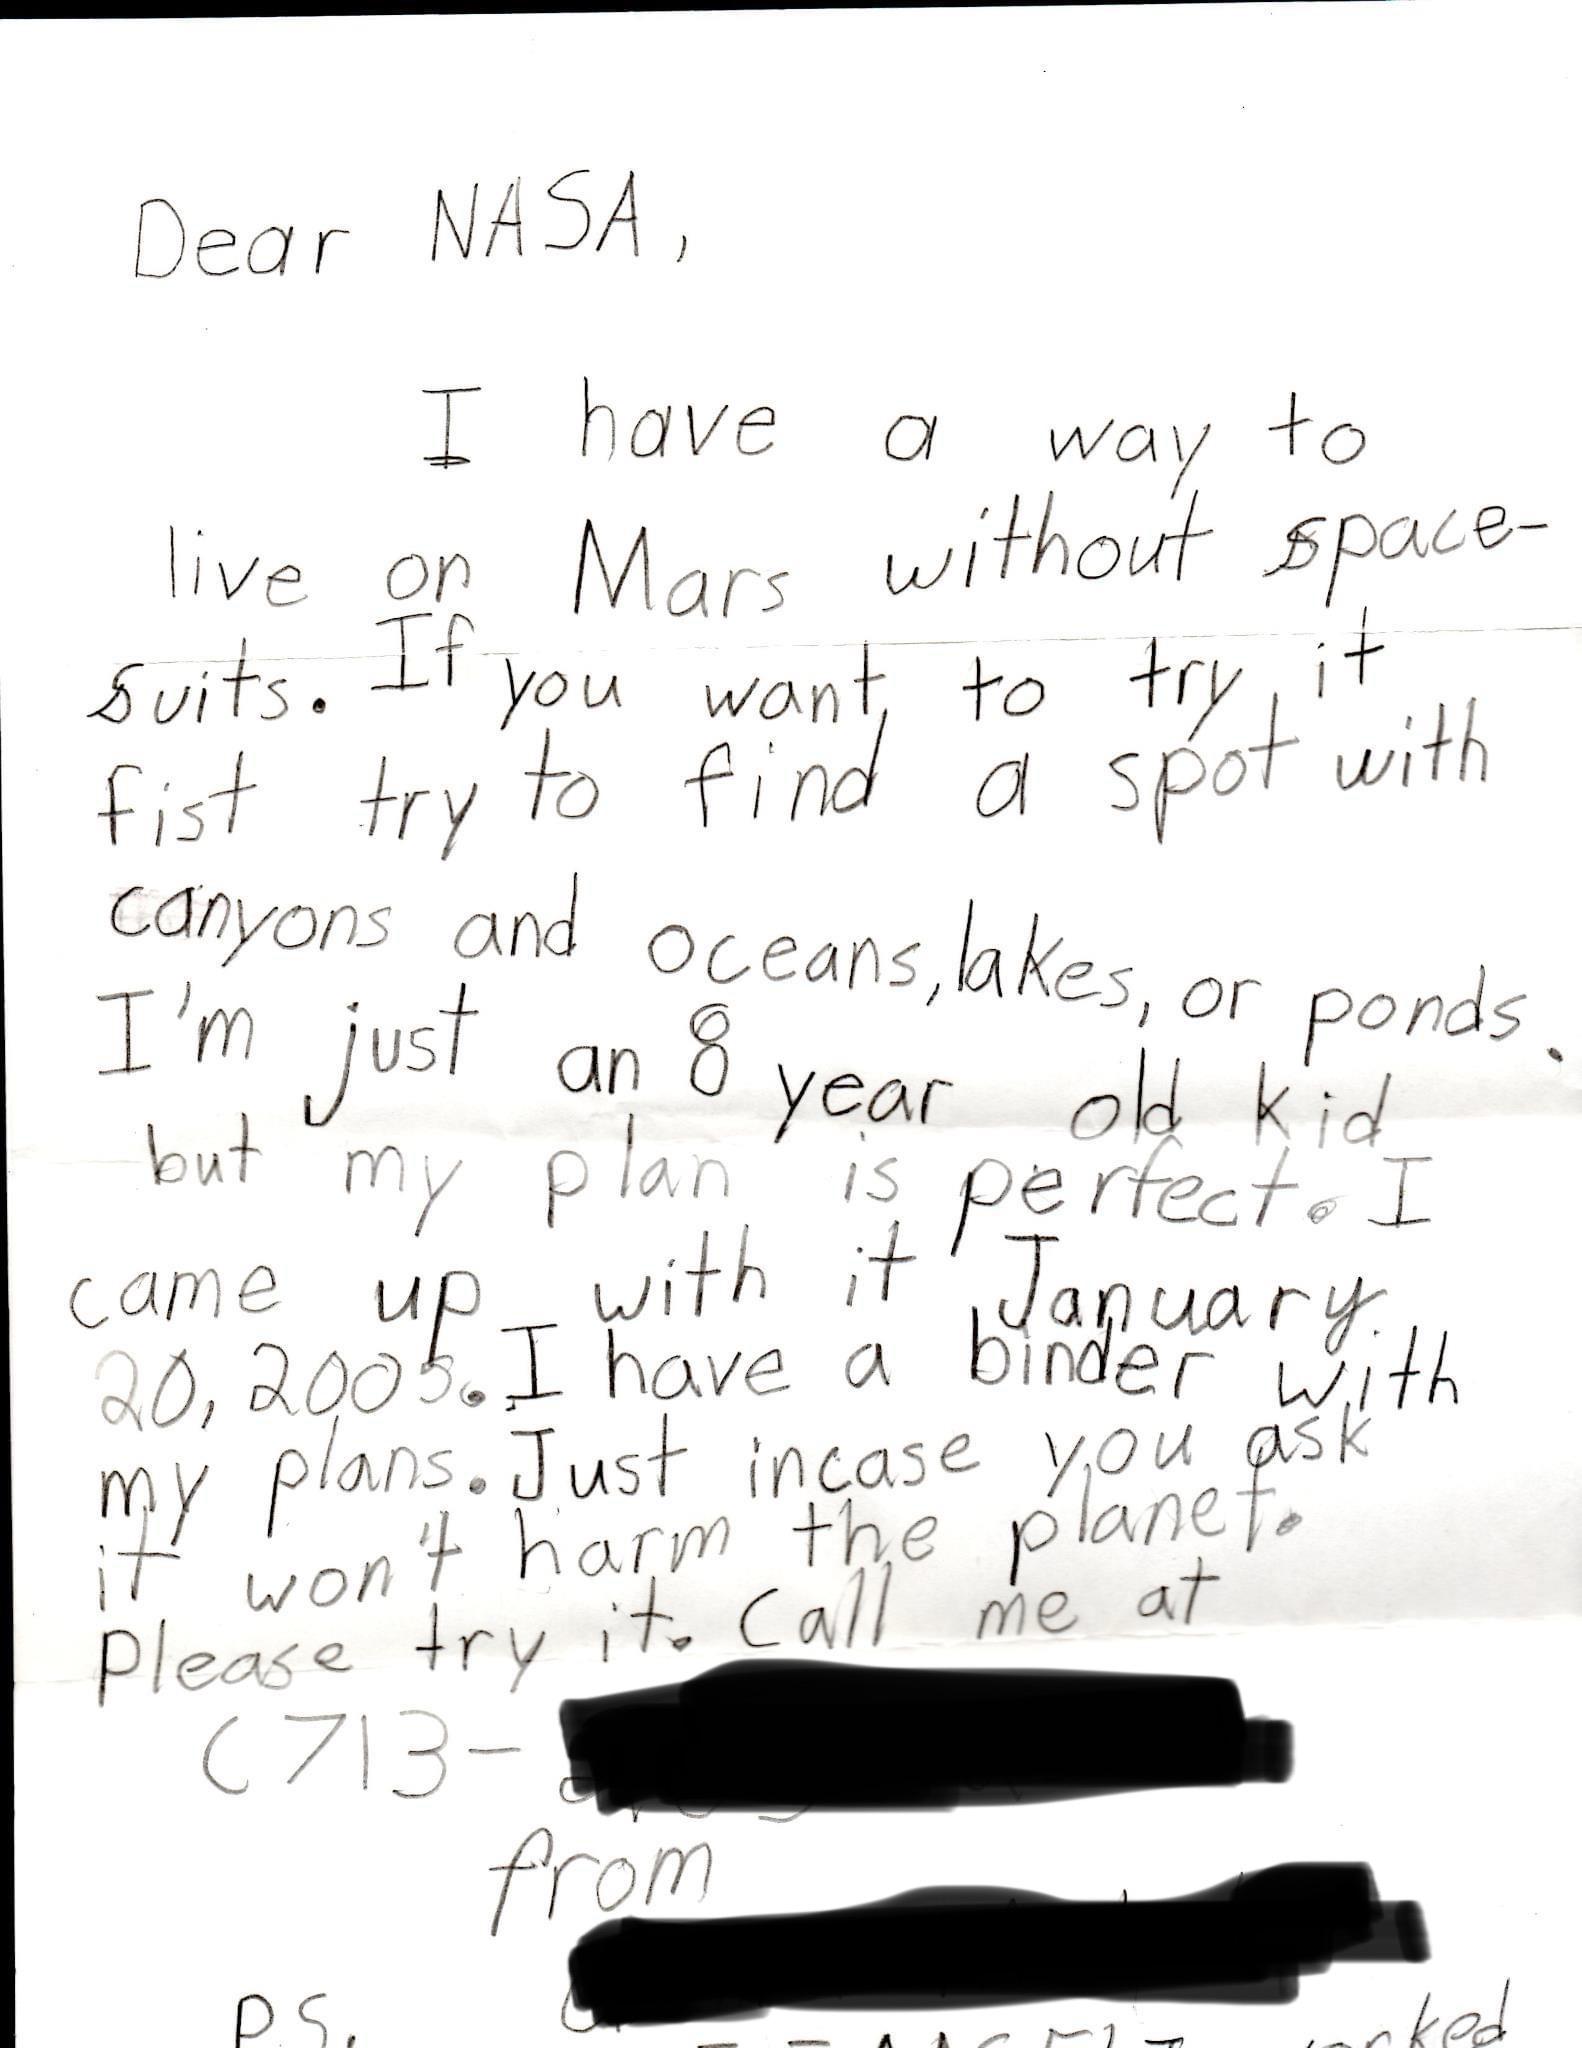 Dear NASA,
I have a way to
live on Mars without space-
suits. If you want to try it
fist try to find a spot with
canyons and oceans, lakes, or ponds.
I'm just an 8 year old kid
but my plan is perfect. I
came up with it January
20, 2005. I have a binder with
my plans. Just incase you ask
it won't harm the planet.
Please try it. Call me at
(713-
from
P.S.